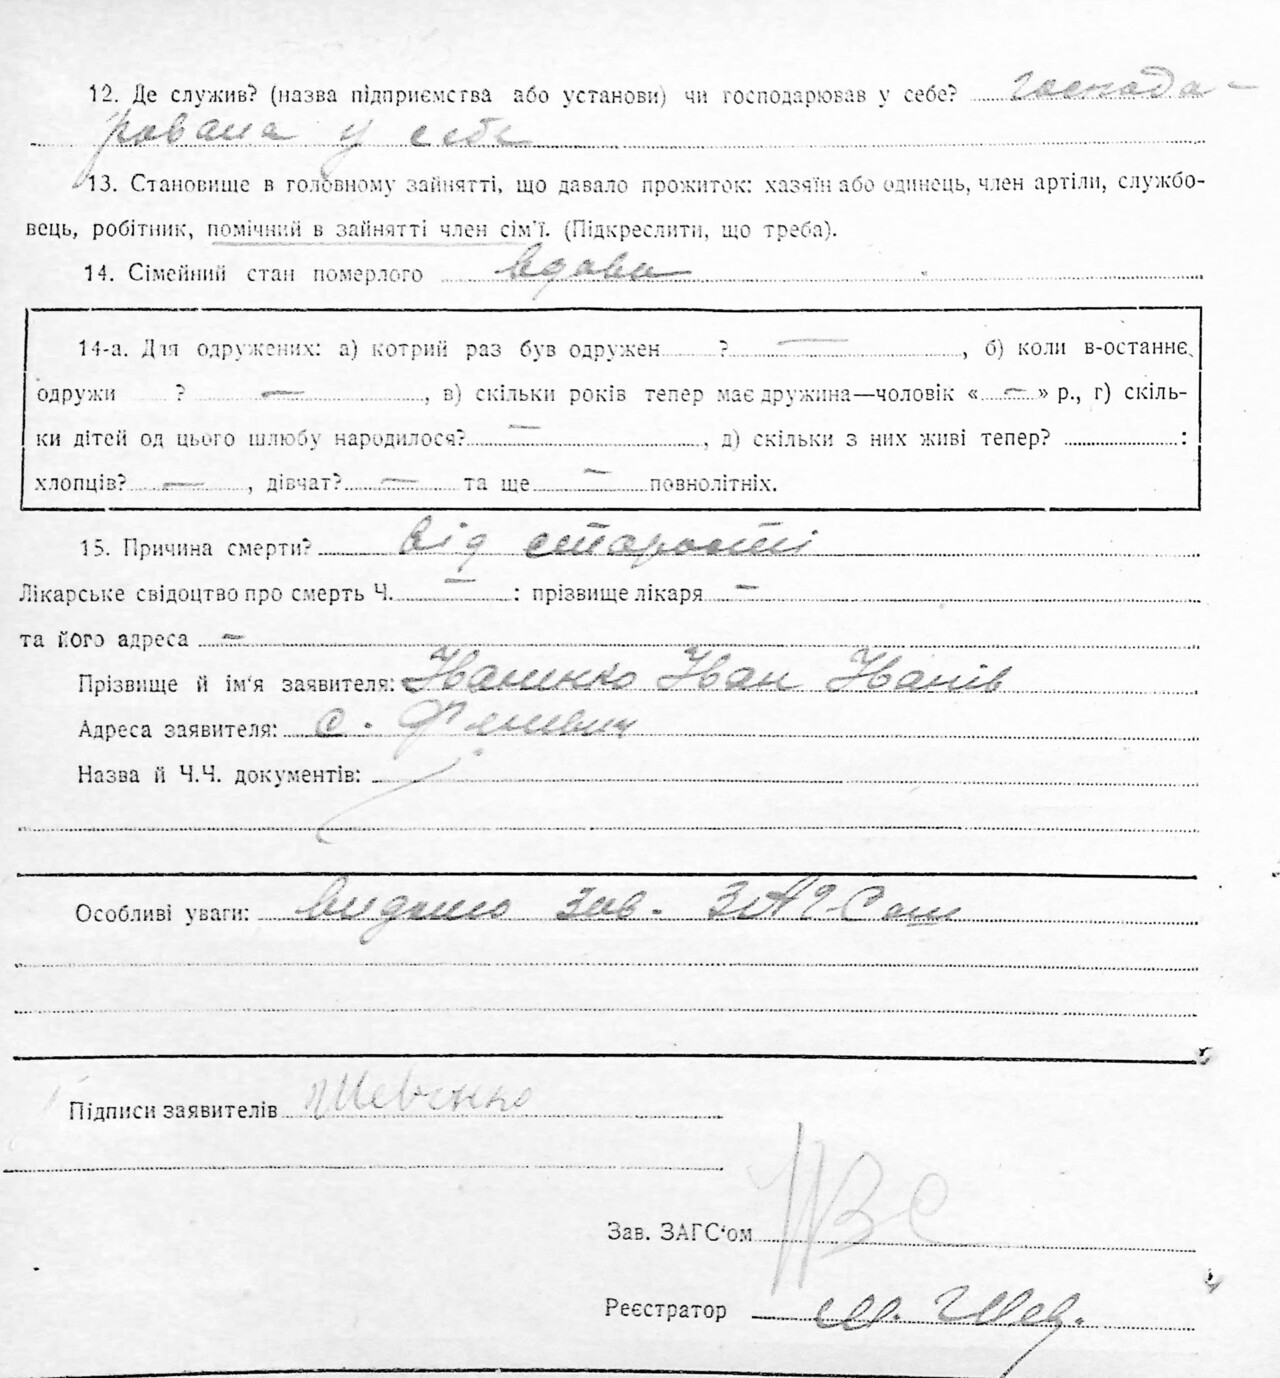 12. Де служив? (назва підприємства або установи) чи господарював у себе? господа-
рювала у себе
13. Становище в головному зайнятті, що давало прожиток: хазяїн або одинець, член артіли, службо-
вець, робітник, помічний в зайнятті член сім'ї. (Підкреслити, що треба).
14. Сімейний стан померлого вдова
14-а. Для одружених: а) котрий раз був одружен ? —, б) коли в-останнє
одружи ? —, в) скільки років тепер має дружина—чоловік « — » р., г) скіль-
ки дітей од цього шлюбу народилося? —, д) скільки з них живі тепер? :
хлопців? —, дівчат? — та ще — повнолітніх.
15. Причина смерти? від старости
Лікарське свідоцтво про смерть Ч. — : прізвище лікаря —
та його адреса —
Прізвище й ім'я заявителя: Іваненко Іван Іванів
Адреса заявителя: с.
Назва й Ч.Ч. документів:
Особливі уваги: видано зав. ЗАГСом
Підписи заявителів
Зав. ЗАГС'ом
Реєстратор М. Шев.